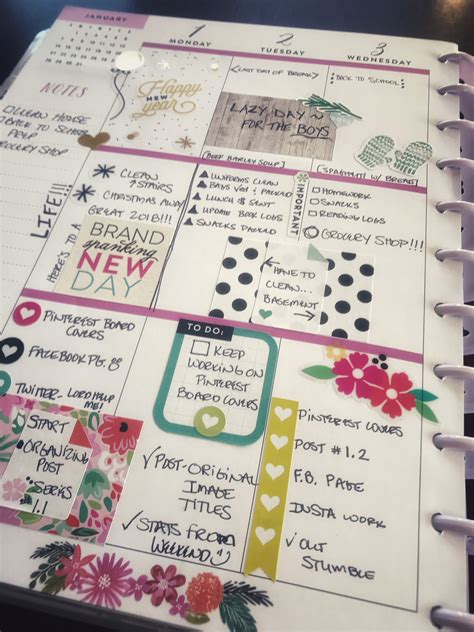 JANUARY
1
MONDAY
2
TUESDAY
3
WEDNESDAY
NOTES
CLEAN HOUSE
BACK TO SCHOOL
PREP
GROCERY SHOP
LIFE!!!
HERE'S TO A
GREAT 2018!!!
Happy
NEW
year
CLEAN
UPSTAIRS
CHRISTMAS AWAY
BRAND
spanking
NEW
DAY
<LAST DAY OF BREAK>
LAZY DAY
FOR THE BOYS
[BEEF BARLEY SOUP]
UNIFORMS CLEAN
PACKED
LUNCH $ SENT
UPDATE BOOK LOGS
SNACKS PACKED
HAVE TO
CLEAN...
BASEMENT
BACK TO SCHOOL
[SPAGHETTI W/ BREAD]
IMPORTANT
HOMEWORK
SNACKS
READING LOGS
GROCERY SHOP!!!
PINTEREST BOARD
COVERS
FACEBOOK PG.
TWITTER- LORD HELP
ME!
START
ORGANIZING
POST
SERIES
1.1
TO DO:
KEEP
WORKING ON
PINTEREST
BOARD COVERS
✓ POST-ORIGINAL
IMAGE
TITLES
✓ STATS FROM
WEEKEND
PINTEREST COVERS
POST #1.2
F.B. PAGE
INSTA WORK
STUMBLE